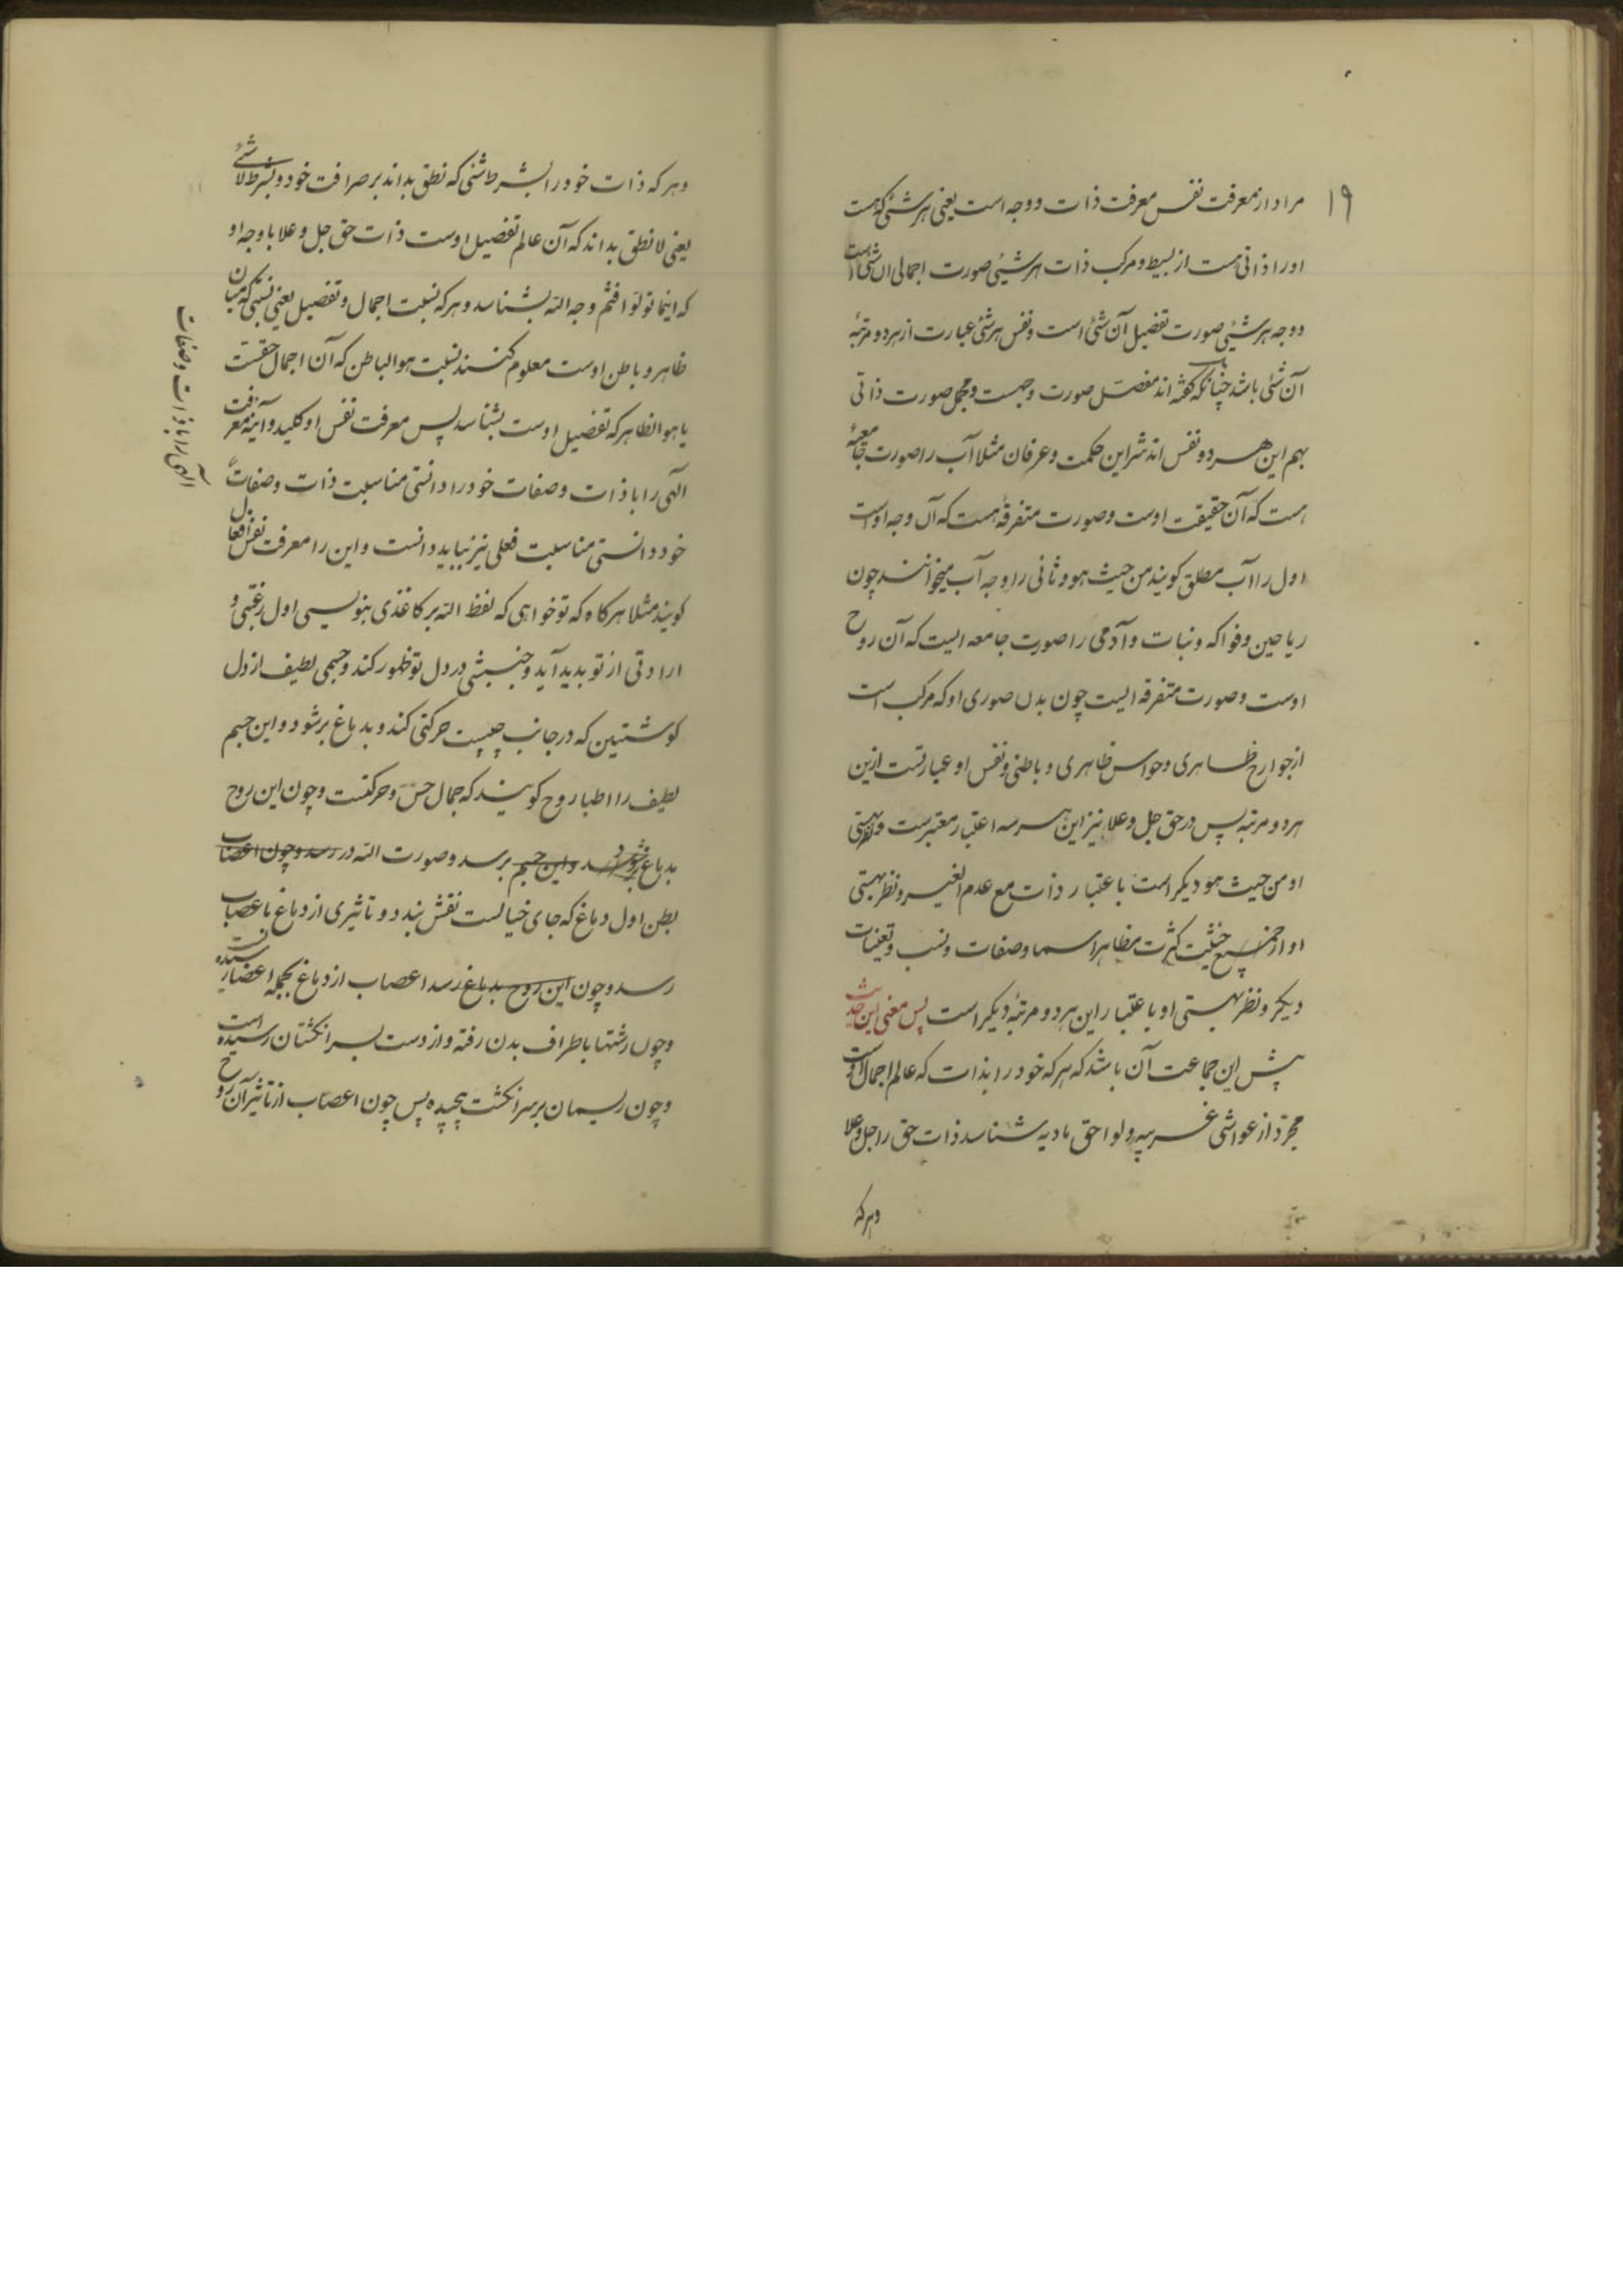 ۱۹
مراد از معرفت نفس معرفت ذات و وجه است یعنی هر شئی که هست
او را ذاتی هست از بسیط و مرکب ذات هر شیئی صورت اجمالی آن شئ است
و وجه هر شیئی صورت تفصیل آن شئ است و نفس هر شئ عبارت از هر دو مرتبهٔ
آن شئ باشد چنانکه گفته اند مفصل صورت وجهست و مجمل صورت ذاتی
بهم این هر دو نفس اند این حکمت و عرفان مثلا آب را صورت جامعهٔ
هست که آن حقیقت اوست و صورت متفرقهٔ هست که آن وجه اوست
اول را آب مطلق کویند من حیث هو و ثانی را وجه آب میخوانند چون
ریاحین و فواکه و نبات و آدمی را صورت جامعه ایست که آن روح
اوست و صورت متفرقه ایست چون بدن صوری او که مرکب است
از جوارح ظاهری و حواس ظاهری و باطنی و نفس او عبارتست ازین
هر دو مرتبه پس در حق جل و علا نیز این هر سه اعتبار معتبرست و نظر بهستی
او من حیث هو دیکر است باعتبار ذات مع عدم الغیر و نظر بهستی
او از حیثیت کثرت مظاهر اسما و صفات و نسب و تعینات
دیکر و نظر بهستی او باعتبار این هر دو مرتبهٔ دیکر است پس معنی این حدیث
پیش این جماعت آن باشد که هر که خود را بذات که عالم اجمال اوست
مجرد از غواشی غریبه و لواحق مادیه شناسد ذات حق را جل و علا
و هر که
و هر که ذات خود را بشرط شئی که نطق بداند بر صرافت خود و بشرط لا شئ
یعنی لا نطق بداند که آن عالم تفصیل اوست ذات حق جل و علا با وجه او
که اینما تولوا فثم وجه الله بشناسد و هر که نسبت اجمال و تفصیل یعنی نسبتی که میان
ظاهر و باطن اوست معلوم کند نسبت هو الباطن که آن اجمال حقست
با هو الظاهر که تفصیل اوست بشناسد پس معرفت نفس او کلید و آینه معرفت
الهی را با ذات و صفات خود را دانستی مناسبت ذات و صفات
خود دانستی مناسبت فعلی نیز بباید دانست و این را معرفت نفس افعال
کویند مثلا هر کاه که تو خواهی که لفظ الله بر کاغذی بنویسی اول رغبتی و
ارادتی از تو بدید آید و جنبشی در دل تو ظهور کند و جسمی لطیف از دل
کوشتین که در جانب چپست حرکتی کند و بدماغ بر شود و این جسم
لطیف را اطبا روح کویند که حمال حس و حرکتست و چون این روح
بدماغ بر شود و این جسم برسد و صورت الله در رسد و چون اعصاب
بطن اول دماغ که جای خیالست نقش بندد و تاثیری از دماغ باعصاب
رسد و چون این روح بدماغ رسد اعصاب از دماغ بجمله اعضا رسیده
و چون رشتها باطراف بدن رفته و از دست بسر انکشتان رسیده است
و چون ریسمان بر سر انکشت پیچیده پس چون اعصاب از تاثیر آن روح
الهی را با ذات و صفات